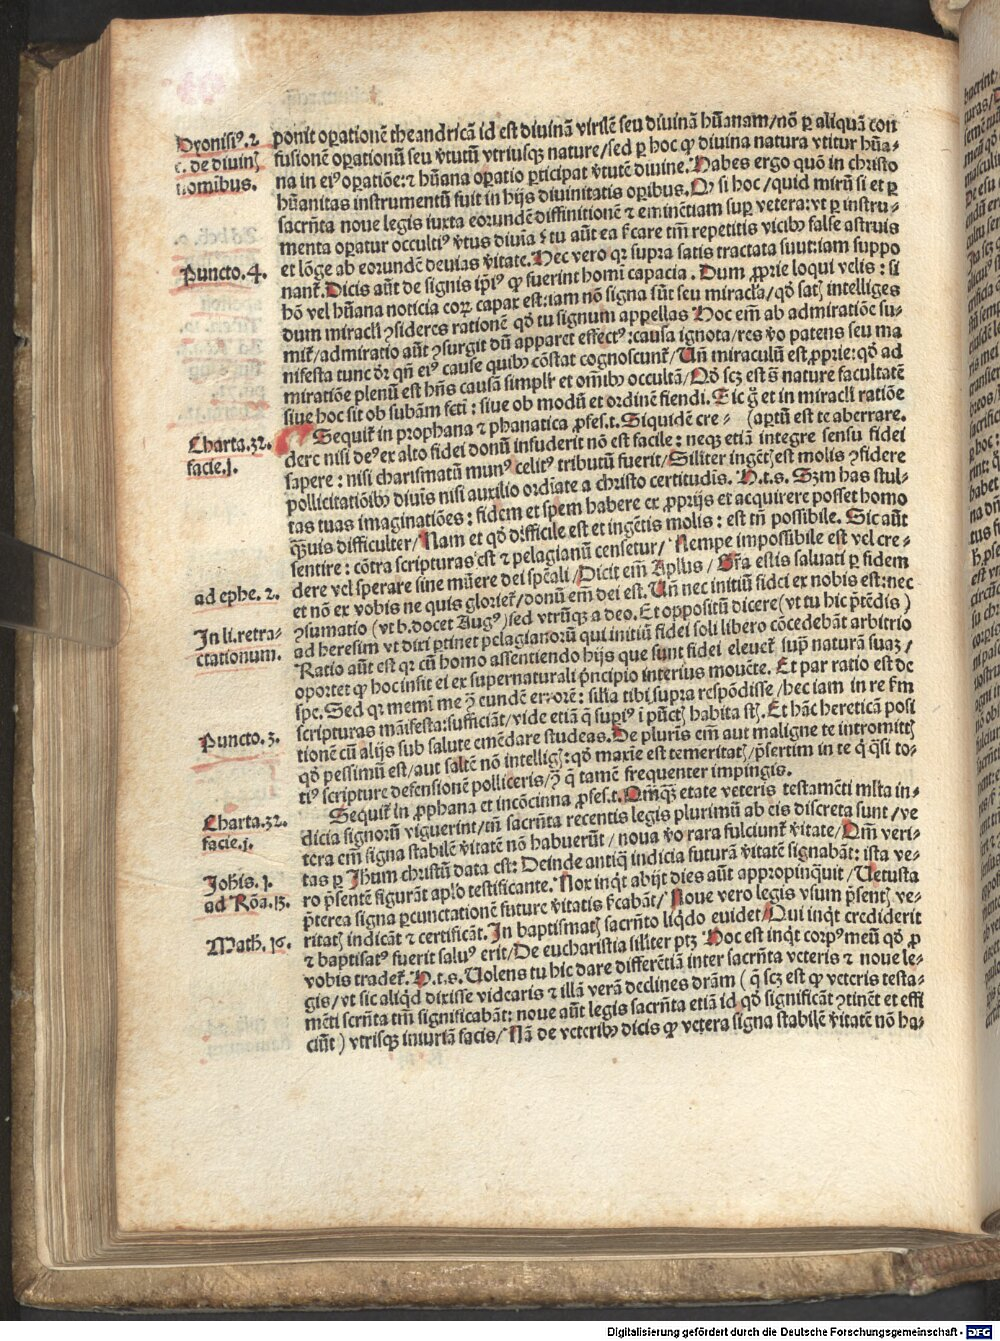 Dyonisiꝰ. 2.
c. de diuinꝭ
nomibus.
ponit oꝑationē theandricā id est diuinā virilē seu diuinā hūanam/nō ꝑ aliquā con
fusionē oꝑationū seu v̄tutū vtriusqꝫ nature/sed ꝑ hoc ꝙ diuina natura vtitur hūa⸗
na in eiꝰ oꝑatiōe: ⁊ hūana oꝑatio ꝑticipat v̄tutē diuine. Habes ergo quō in christo
hūanitas instrumentū fuit in hijs diuinitatis oꝑibus. Qꝙ si hoc/quid mirū si et ꝑ
sacrn̄ta noue legis iuxta eorundē diffinitionē ⁊ eminētiam suꝑ vetera: vt ꝑ instru⸗
menta oꝑatur occultiꝰ v̄tus diuīa ꝫ tu aūt ea ẜcare tm̄ repetitis vicibꝰ false astruis
Puncto. 4.
et lōge ab eorundē deuias v̄itate. Hec vero qꝛ supra satis tractata sunt: iam suppo
nant᷑. Dicis aūt de signis ip̄iꝰ ꝙ fuerint homī capacia. Dum ꝓprie loqui velis: si
hō vel hūana noticia coꝝ capax est: iam nō signa sūt seu miracl̄a/qd̕ satꝭ intelliges
dum miracl̄i ꝯsideres rationē qd̕ tu signum appellas Hoc em̄ ab admiratiōe su⸗
mit᷑/admiratio aūt ꝯsurgit dū apparet effectꝰ: causa ignota/res v̄o patens seu ma
nifesta tunc dr̄ qn̄ eiꝰ cause quibꝰ cōstat cognoscunt᷑/Un̄ miraculū est ꝓprie: qd̕ ad
miratiōe plenū est hn̄s causā simplr̄ et om̄ibꝰ occultā/Qd̕ scꝫ est s̄ nature facultatē
siue hoc sit ob subām fcti: siue ob modū et ordinē fiendi. Sic g̊ et in miracl̄i ratiōe
(aꝑtū est te aberrare.
Charta. 32.
facie. j.
Sequit᷑ in prophana ⁊ phanatica ꝓfes. t. Siquidē cre⸗
dere nisi deꝰ ex alto fidei donū infuderit nō est facile: neqꝫ etiā integre sensu fidei
sapere: nisi charismatū munꝰ celitꝰ tributū fuerit/Siliter ingētꝭ est molis ꝯfidere
pollicitatiōibꝰ diuinis nisi auxilio ordīate a christo certitudīs. H. t. s. Scꝫm has stul⸗
tas tuas imaginatiōes: fidem et spem habere ex ꝓprijs et acquirere posset homo
qꝙuis difficulter/Nam et qd̕ difficile est et ingētis molis: est tn̄ possibile. Sic aūt
sentire: cōtra scripturas est ⁊ pelagianū censetur/Nempe impossibile est vel cre⸗
dere vel sperare sine mūere dei sp̄eāli/Dicit em̄ Ap̄lus/Gr̄a estis saluati ꝑ fidem
ad ephe. 2.
et nō ex vobis ne quis glorief᷑/donū em̄ dei est. Un̄ nec initiū fidei ex nobis est: nec
ꝯsumatio (vt b. docet Augꝰ) sed vtrūqꝫ a deo. Et oppositū dicere (vt tu hic p̄tēdis)
In li. retra⸗
ctationum.
ad heresim vt dixi ꝑtinet pelagianorū qui initiū fidei soli libero cōcedebāt arbitrio
Ratio aūt est qꝛ cū homo assentiendo hijs que sunt fidei eleuet᷑ supͣ naturā suaꝫ/
oportet ꝙ hoc insit ei ex supernaturali p̄ncipio interius mouēte. Et par ratio est de
spe. Sed qꝛ memī me ꝫ eundē errorē: silīa tibi supra respōdisse/hec iam in re ẜm
scripturas māifesta: sufficiāt/vide etiā ꝙ supͥꝰ ī pūctꝭ habita st̄. Et hāc hereticā posi
Puncto. 3.
tionē cū alijs sub salute emēdare studeas. De pluris em̄ aut maligne te intromittꝭ
qd̕ pessimū est/aut saltē nō intelligꝭ: qd̕ maxīe est temeritatꝭ/p̄sertim in te q̄ q̄si to⸗
tiꝰ scripture defensionē polliceris/ꝫ q̄ tamē frequenter impingis.
Charta. 32.
facie. j.
Sequit᷑ in ꝓphana et incōcinna ꝓfes. t. Qm̄qꝫ etate veteris testamēti ml̄ta in⸗
dicia signorū viguerint/tn̄ sacrn̄ta recentis legis plurimū ab eis discreta sunt/ve
tera em̄ signa stabilē v̄itatē nō habuerūt/noua v̄o rara fulciunt᷑ v̄itate/Qm̄ veri⸗
Johis. j.
tas ꝑ Jhum christū data est: Deinde antiq̄ indicia futurā v̄itatē signabāt: ista ve⸗
ad Rōa. 13.
ro p̄sentē figurāt apl̄o testificante. Nox inqͭ abijt dies aūt appropinq̄uit/Uetusta
p̄terea signa ꝑcunctationē future v̄itatis ẜcabāt/Noue vero legis vsum p̄sentꝭ ve⸗
Math. 16.
ritatꝭ indicāt ⁊ certificāt. In baptismatꝭ sacrn̄to liq̄do euidet᷑ Qui inqͭ crediderit
⁊ baptisatꝰ fuerit saluꝰ erit/De eucharistia siliter ptꝫ Hoc est inqͭ corpꝰ meū qd̕ ꝓ
vobis tradet᷑. H. t. s. Uolens tu hic dare differētiā inter sacrn̄ta veteris ⁊ noue le⸗
gis/vt sic aliq̄d dixisse videaris ⁊ illā verā declines dr̄am (q̄ scꝫ est ꝙ veteris testa⸗
mēti scrn̄ta tm̄ significabāt: noue aūt legis sacrn̄ta etiā id qd̕ significāt ꝯtinēt et effi
ciūt) vtrisqꝫ iniuriā facis/Nā de veteribꝰ dicis ꝙ vetera signa stabilē v̄itatē nō ha⸗
Digitalisierung gefördert durch die Deutsche Forschungsgemeinschaft - DFG